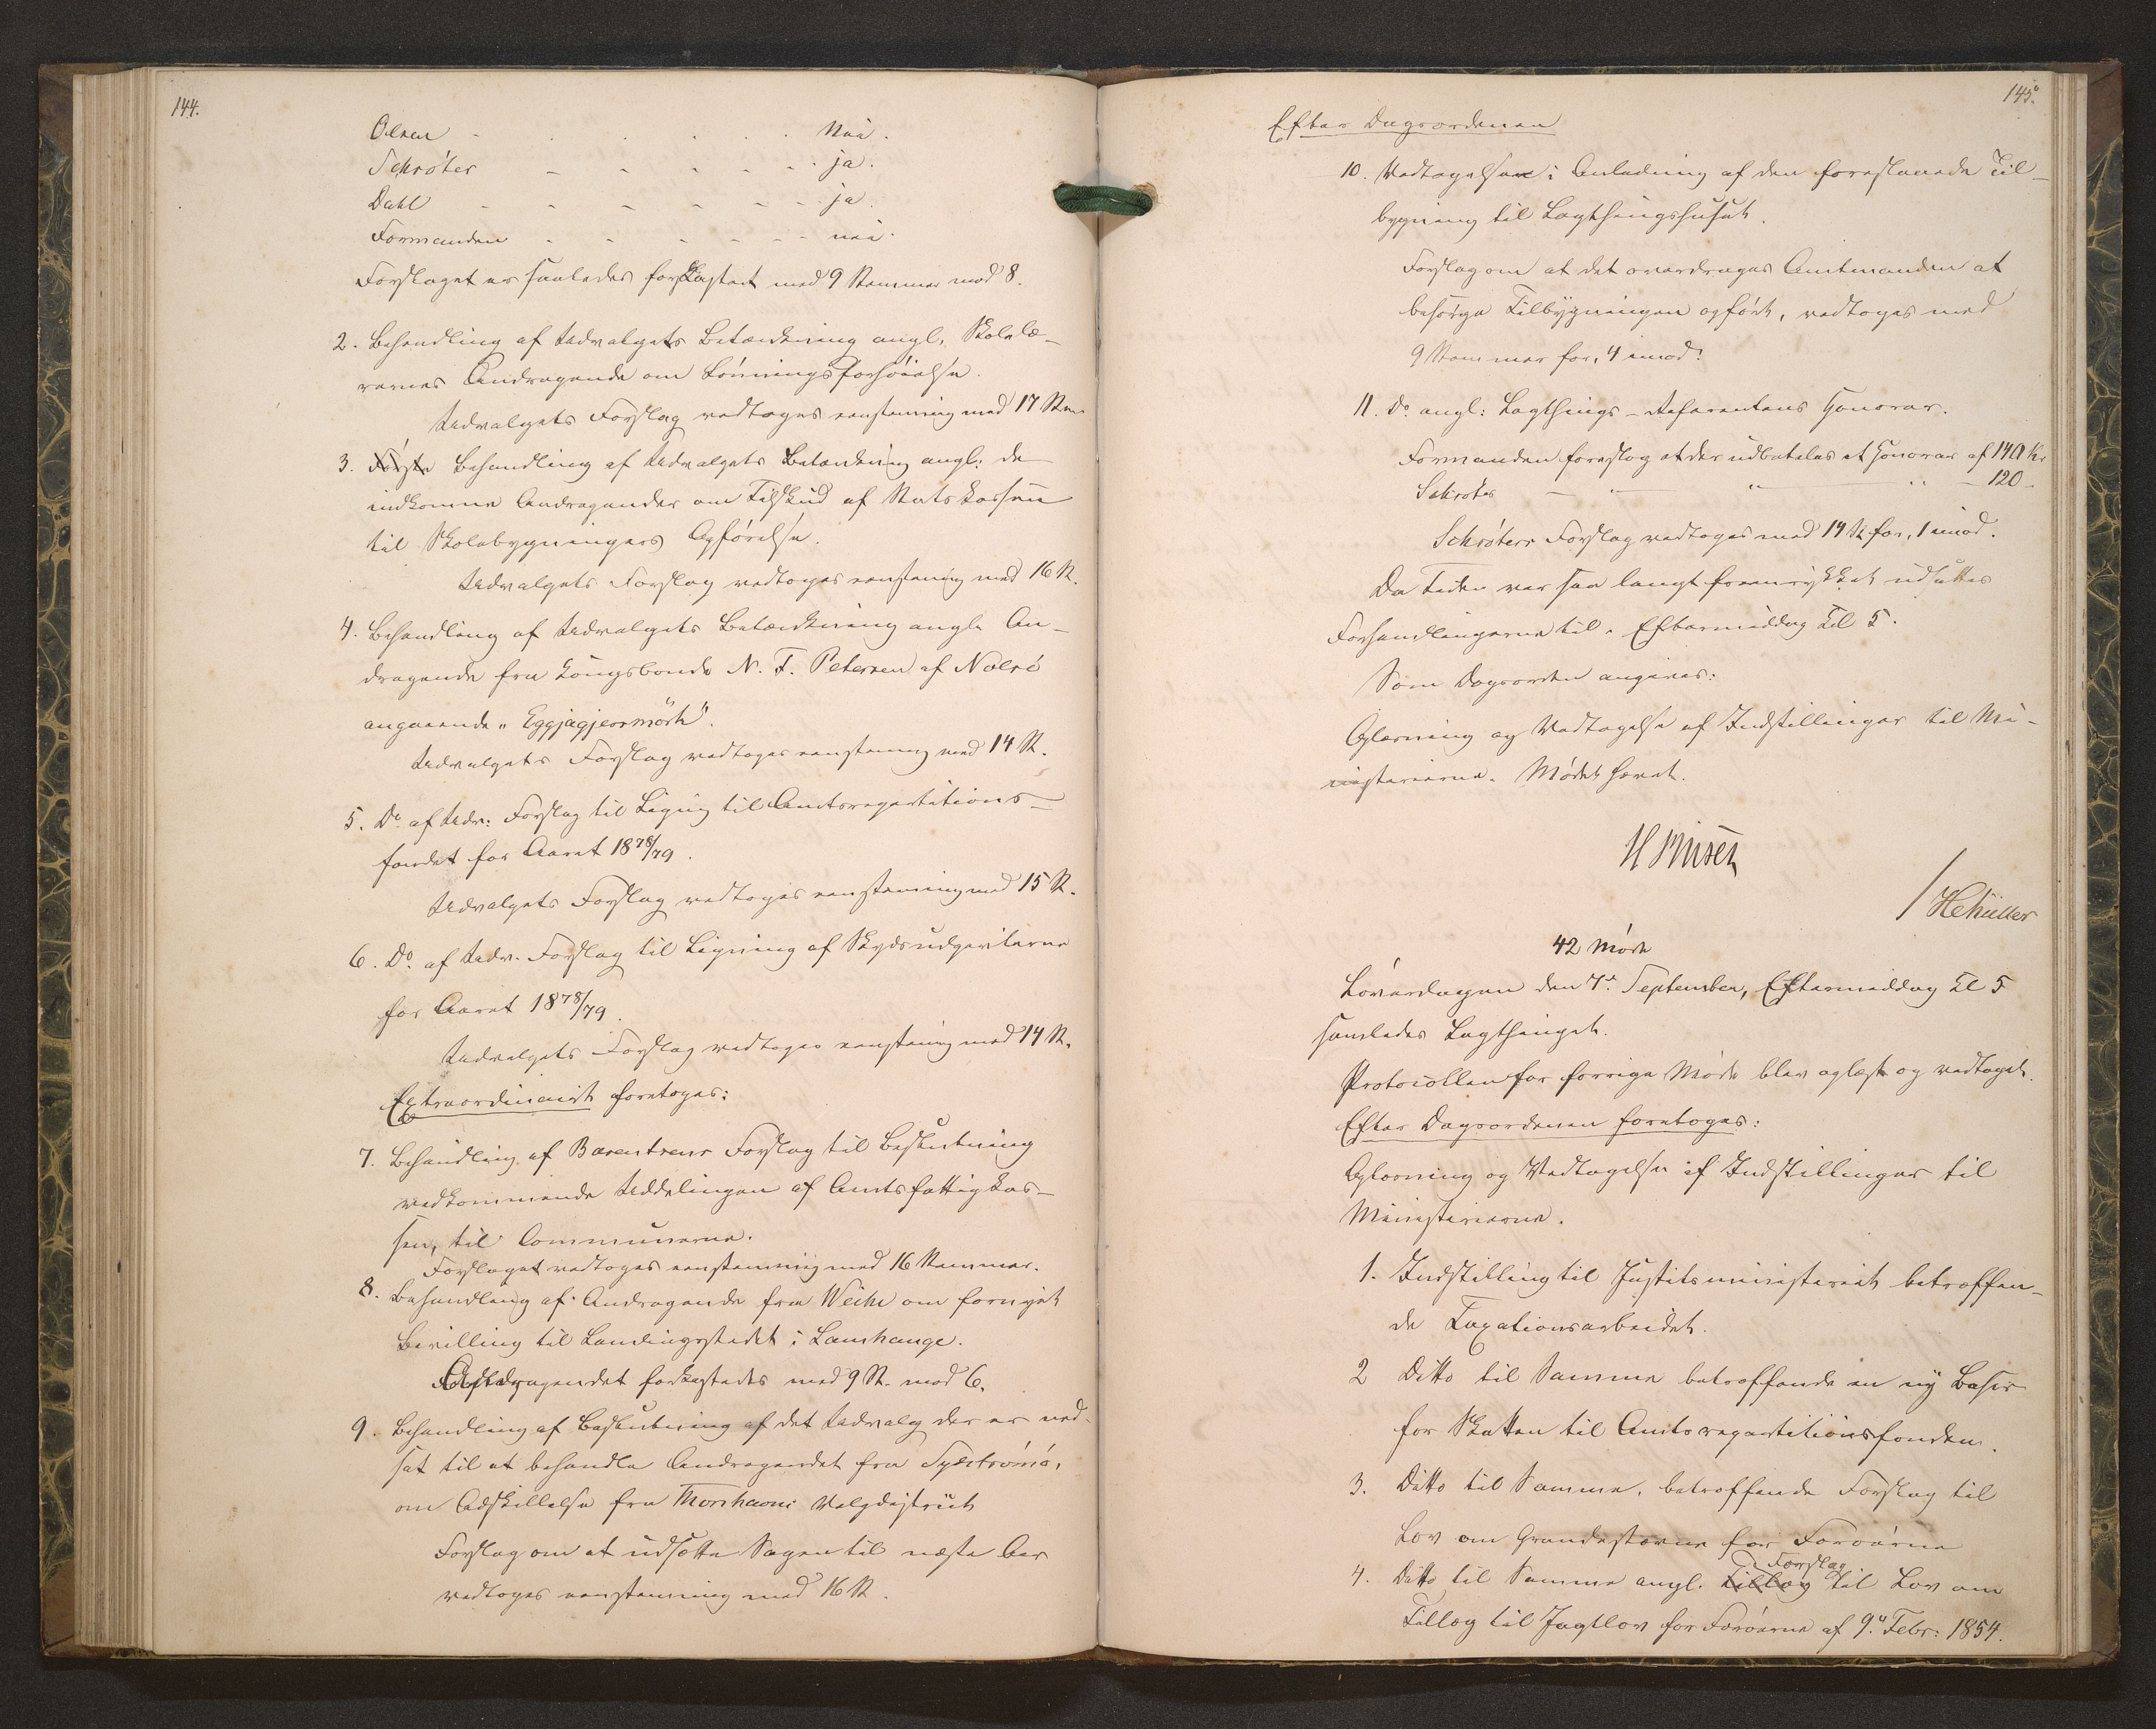 144.
Olsen - . . . . . Nei.
Schrøter - - - - - - ja.
Dahl - - - - - - ja.
Formanden - - - - - - nei.
Forslaget er saaledes forkastet med 9 Stemmer mod 8.
2. Behandling af Udvalgets Betænkning angl. Skolelæ-
rernes Andragende om Lønningsforhøielse.
Udvalgets Forslag vedtoges eenstemmig med 17 Stm.
3. Første Behandling af Udvalgets Betænkning angl: de
indkomne Andragender om Tilskud af Statskassen
til Skolebygningers Opførelse.
Udvalgets Forslag vedtoges eenstemmig med 16 St.
4. Behandling af Udvalgets Betænkning angl. An-
dragende fra Kongsbonde N. F. Petersen af Nolsø
angaaende "Eggjagjeormørk".
Udvalgets Forslag vedtoges eenstemmig med 14 St.
5. Do. af Udv: Forslag til Ligning til Amtsrepartitions-
fondet for Aaret 1878/79.
Udvalgets Forslag vedtoges eenstemmig med 15 St.
6. Do. af Udv. Forslag til Ligning af Skydsudgifterne
for Aaret 1878/79.
Udvalgets Forslag vedtoges eenstemmig med 14 St.
Extraordinairt foretoges:
7. Behandling af Barentsens Forslag til Beslutning
vedkommende Uddelingen af Amtsfattigkas-
sen, til Communerne.
Forslaget vedtoges eenstemmig med 16 Stemmer.
8. Behandling af Andragende fra Weihe om fornyet
Bevilling til Landingsstedet i Lamhauge.
Andragendet forkastedes med 9 St. mod 6.
9. Behandling af Beslutning af det Udvalg der er ned-
sat til at behandle Andragendet fra Syd-Strømø,
om Adskillelse fra Thorshavns Valgdistrict
Forslag om at udsætte Sagen til næste Aar
vedtoges eenstemmig med 16 St.
145.
Efter Dagsordenen
10. Vedtagelse i Anledning af den foreslaaede Til-
bygning til Lagthingshuset.
Forslag om at det overdrages Amtmanden at
besørge Tilbygningen opført, vedtoges med
9 Stemmer for, 4 imod.
11. Do. angl: Lagthings-Referentens Honorar.
Formanden foreslog at der udbetales et Honorar af 140 Kr
Schrøter — " — " — " — 120 -
Schrøters Forslag vedtoges med 14 St. for, 1 imod.
Da Tiden var saa langt fremrykket udsattes
Forhandlingerne til Eftermiddag Kl 5.
Som Dagsorden angives:
Oplæsning og Vedtagelse af Indstillinger til Mi-
nisterierne. Mødet hævet.
H Müller
42 Møde
Løverdagen den 7de September, Eftermiddag Kl 5
samledes Lagthinget.
Protocollen for forrige Møde blev oplæst og vedtaget.
Efter Dagsordenen foretoges:
Oplæsning og Vedtagelse af Indstillinger til
Ministerierne.
1. Indstilling til Justitsministeriet betræffen-
de Taxationsarbeidet.
2 Ditto til Samme betræffende en ny Basis
for Skatten til Amtsrepartitionsfonden.
3. Ditto til Samme, betræffende Forslag til
Lov om Grandestævne for Færøerne
4. Ditto til Samme angl. Tillæg Forslag til Lov om
Tillæg til Jagtlov for Færøerne af 9de Febr: 1854.